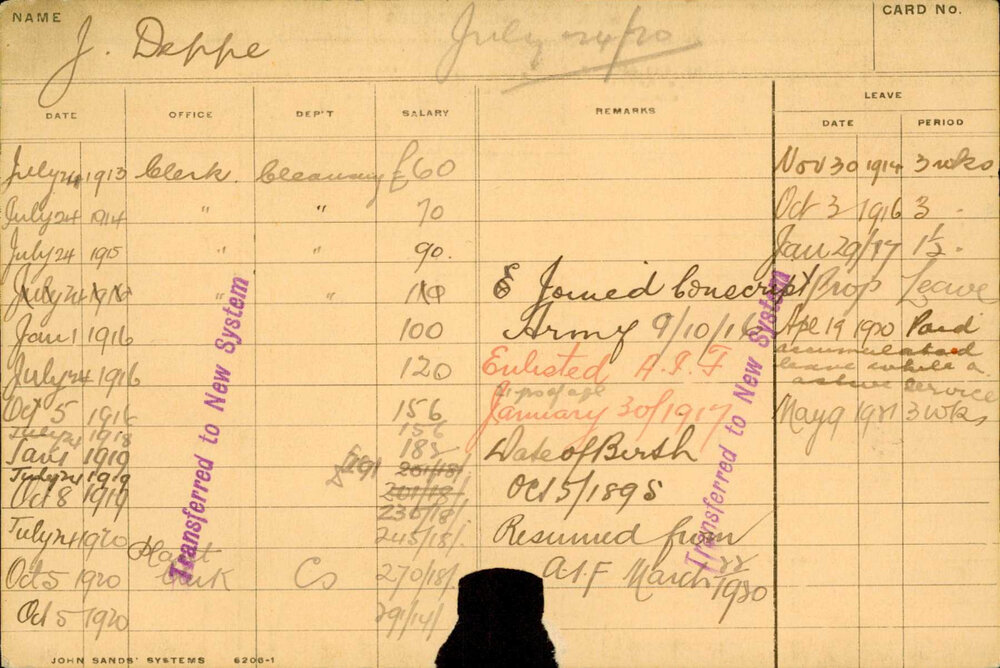 NAME
J. Deppe
July 24/20
CARD No.
DATE OFFICE DEP'T SALARY REMARKS LEAVE
DATE PERIOD
July 24 1913 Clerk £60 Nov 30 1914 3 wks
July 24 1914 " " 70 Oct 3 1916 3 .
July 24 1915 " " 90. Jan 29/17 1½ .
July 24 1916 " " 110 Joined Conscript Prop Leave
Jan 1 1916 100 Army 9/10/16 Apl 19 1920 Paid
accumulated
leave while on
active service
July 24 1916 120 Enlisted A.I.F
proof of age
Oct 5 1916 156 January 30/1917 May 9 1921 3 wks
July 24 1918 156
Jan 1 1919 182 Date of Birth
July 24 1919 201/18/
Oct 8 1919 201/18/ Oct 5/1895
236/18/
July 24 1920 245/18/. Resumed from
Plant
Oct 5 1920 Clerk Cs 270/18/ A.I.F March 22
1920
Oct 5 1920 291/14/
Transferred to New System
Transferred to New System
JOHN SANDS' SYSTEMS 6206-1